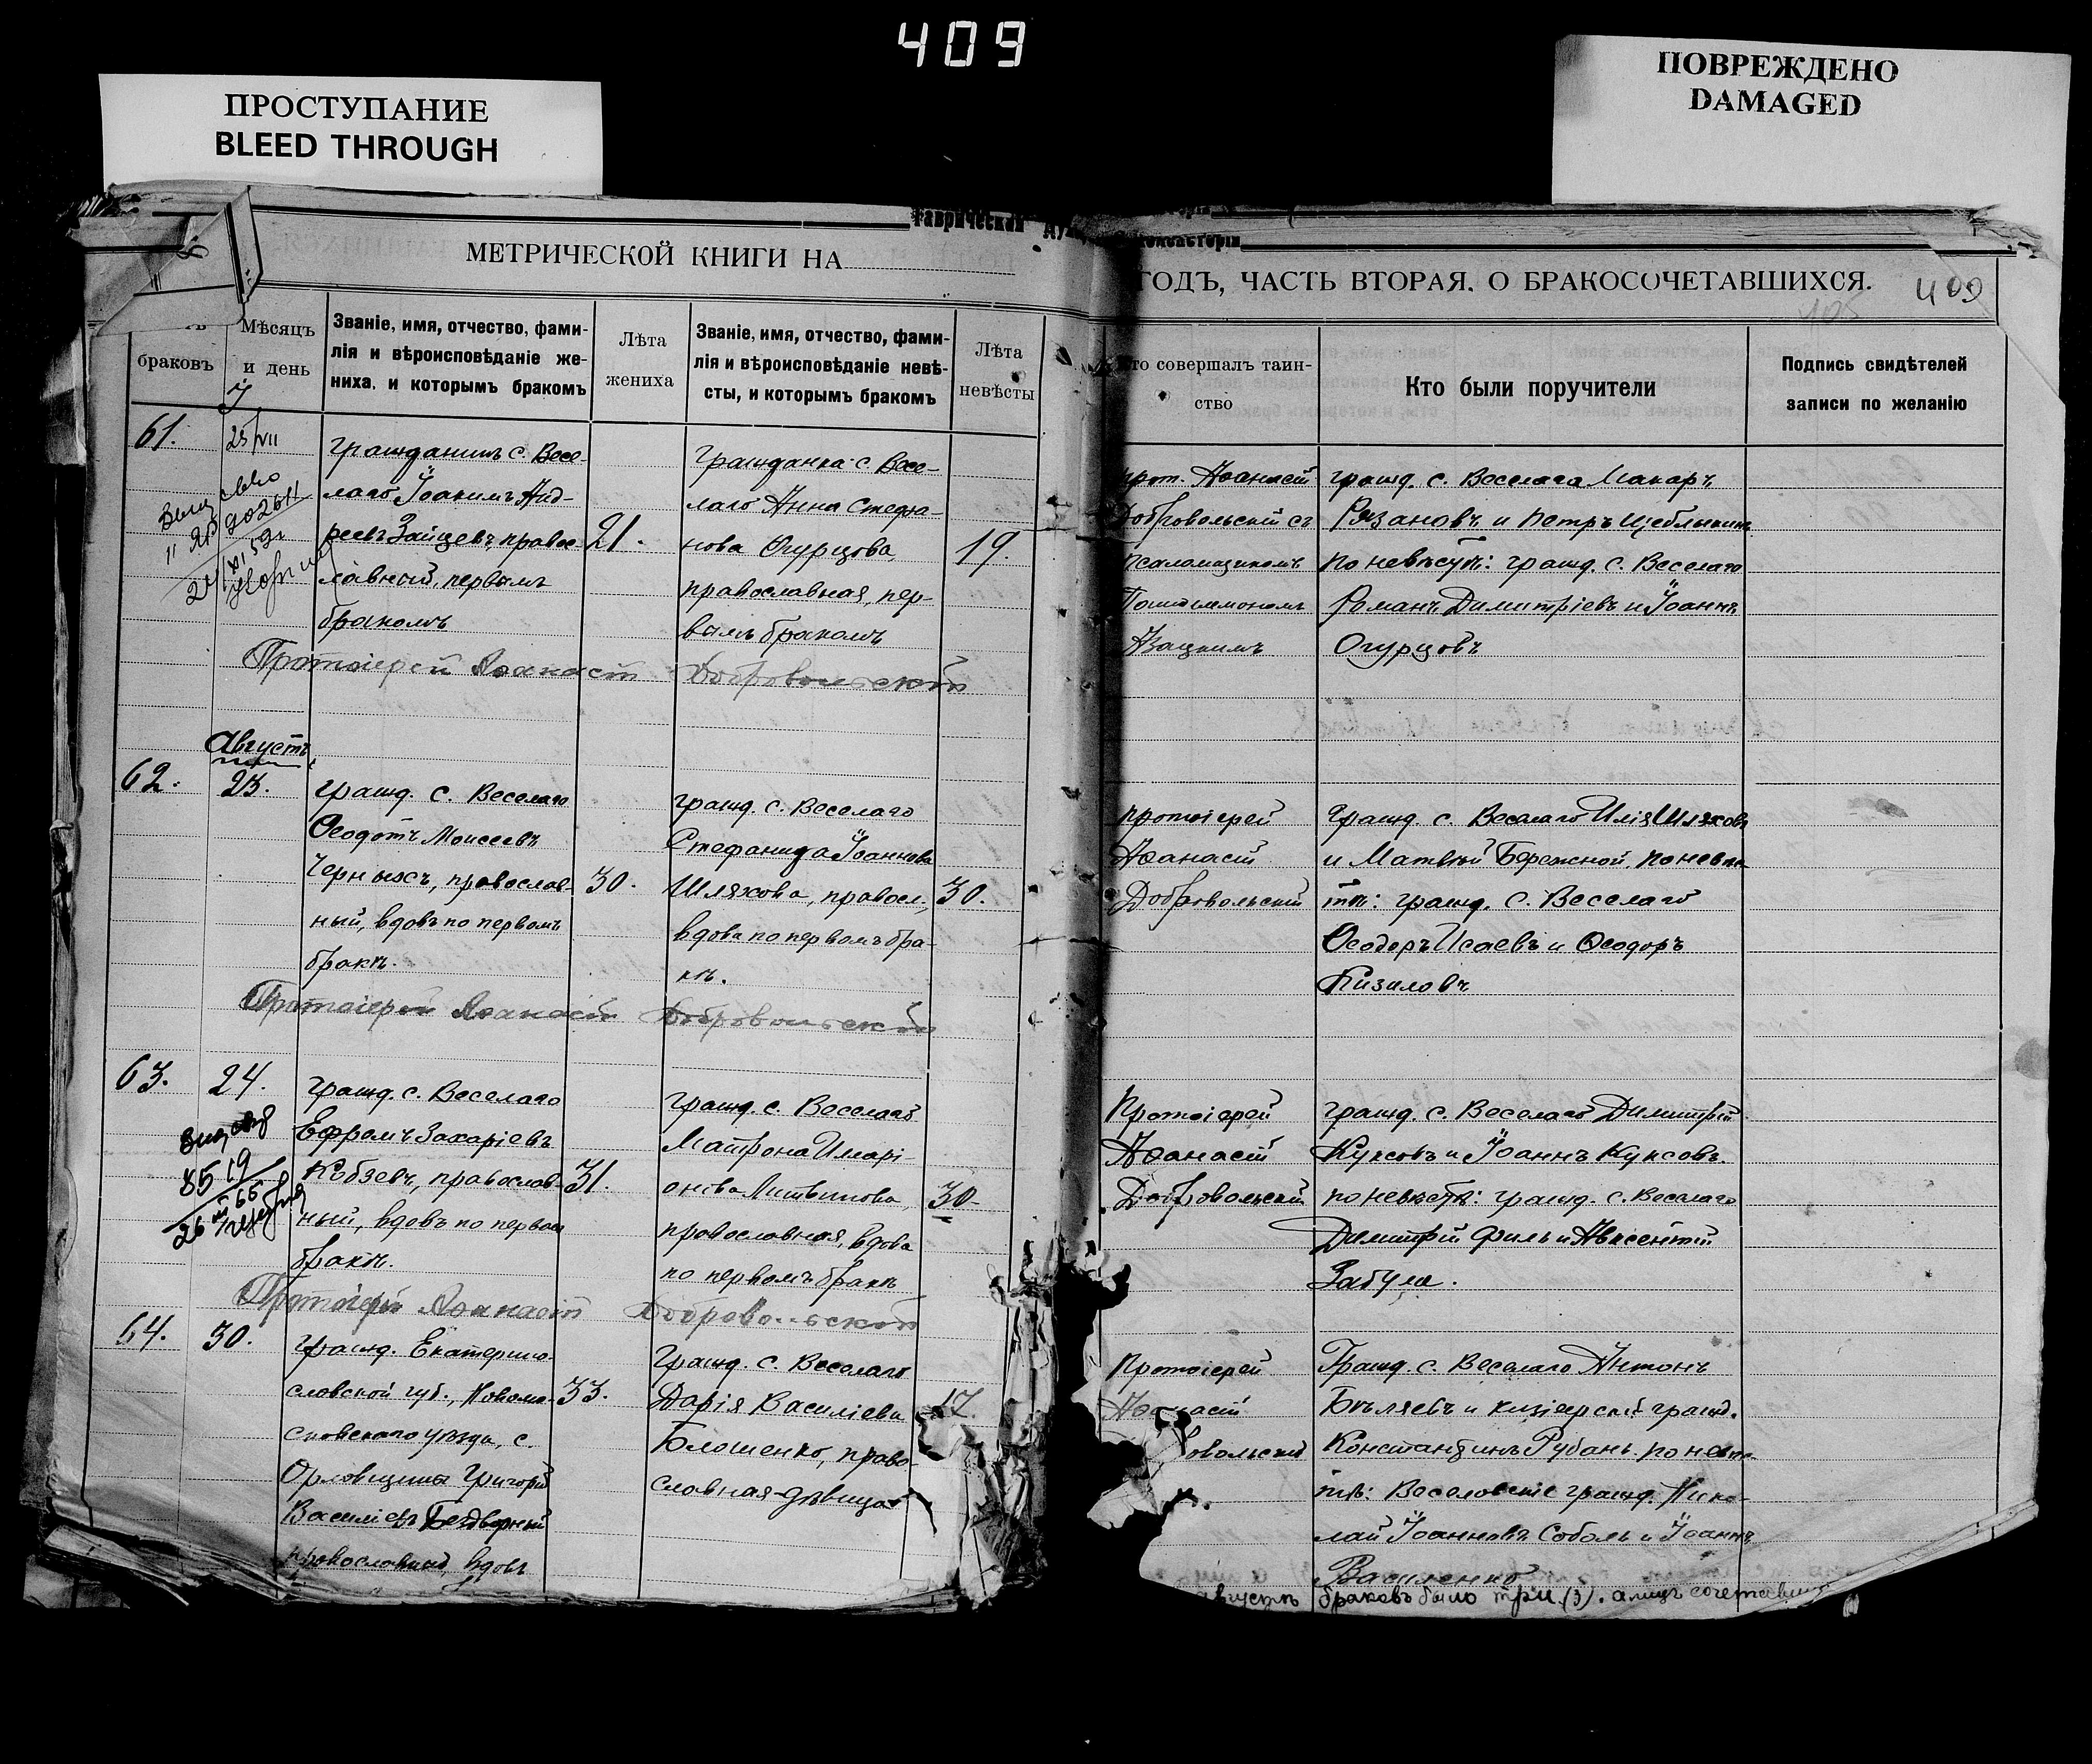 409
ПРОСТУПАНИЕ
BLEED THROUGH
ПОВРЕЖДЕНО
DAMAGED
МЕТРИЧЕСКОЙ КНИГИ НА
ГОДЪ, ЧАСТЬ ВТОРАЯ, О БРАКОСОЧЕТАВШИХСЯ.
409
105
браковъ
Мѣсяцъ
и день
Званіе, имя, отчество, фами-
лія и вѣроисповѣданіе же-
ниха, и которымъ бракомъ
Лѣта
жениха
Званіе, имя, отчество, фами-
лія и вѣроисповѣданіе невѣ-
сты, и которымъ бракомъ
Лѣта
невѣсты
Кто совершалъ таин-
ство
Кто были поручители
Подпись свидѣтелей
записи по желанію
61.
25/VII
гражданинъ с. Весе-
лаго Іоакимъ Анд-
реевъ Зайцевъ, правос-
лавный, первымъ
бракомъ
21.
гражданка с. Весе-
лаго Анна Стефа-
нова Огурцова,
православная, пер-
вымъ бракомъ
19.
прот. Аѳанасій
Добровольскій съ
псаломщикомъ
гражд. с. Веселаго Макаръ
Рязановъ и Петръ Щеблыкинъ
по невѣстѣ: гражд. с. Веселаго
Романъ Димитріевъ и Іоаннъ
Огурцовъ
Протоіерей Аѳанасій Добровольскій
Августъ
62.
23.
гражд. с. Веселаго
Ѳеодотъ Моисеевъ
Черныхъ, православ-
ный, вдовъ по первомъ
бракѣ.
30.
гражд. с. Веселаго
Стефанида Іоаннова
Шляхова, правосл.,
вдова по первомъ бра-
кѣ.
30.
протоіерей
Аѳанасій
Добровольскій
гражд. с. Веселаго Илія Шляховъ
и Матвѣй Бережной по невѣс-
тѣ: гражд. с. Веселаго
Ѳеодоръ Исаевъ и Ѳеодоръ
Кизиловъ
Протоіерей Аѳанасій Добровольскій
63.
24.
гражд. с. Веселаго
Ефремъ Захаріевъ
Кобзевъ, православ-
ный, вдовъ по первом
бракѣ.
31.
гражд. с. Веселаго
Матрона Илларі-
онова Литвинова,
православная, вдова
по первомъ бракѣ
30
Протоіерей
Аѳанасій
Добровольскій
гражд. с. Веселаго Димитрій
Куксовъ и Іоаннъ Куксовъ.
по невѣстѣ: гражд. с. Веселаго
Димитрій Филь и Авксентій
Забуга.
Протоіерей Аѳанасій Добровольскій
64.
30.
гражд. Екатерино-
славской губ., Новомо-
сковскаго уѣзда, с.
Орловщины Григорій
Василіевъ Бездворный
православный, вдовъ
33.
Гражд. с. Веселаго
Дарія Василіева
Блошенко, право-
славная-дѣвица
17.
протоіерей
Аѳанасій
овольскій
Гражд. с. Веселаго Антонъ
Бѣляевъ и кизіярскій гражд.
Константинъ Рубанъ. по невѣс-
тѣ: Веселовскіе гражд. Нико-
лай Іоанновъ Соболь и Іоаннъ
Василенко
августѣ браковъ было три (3). а лицъ сочетавш